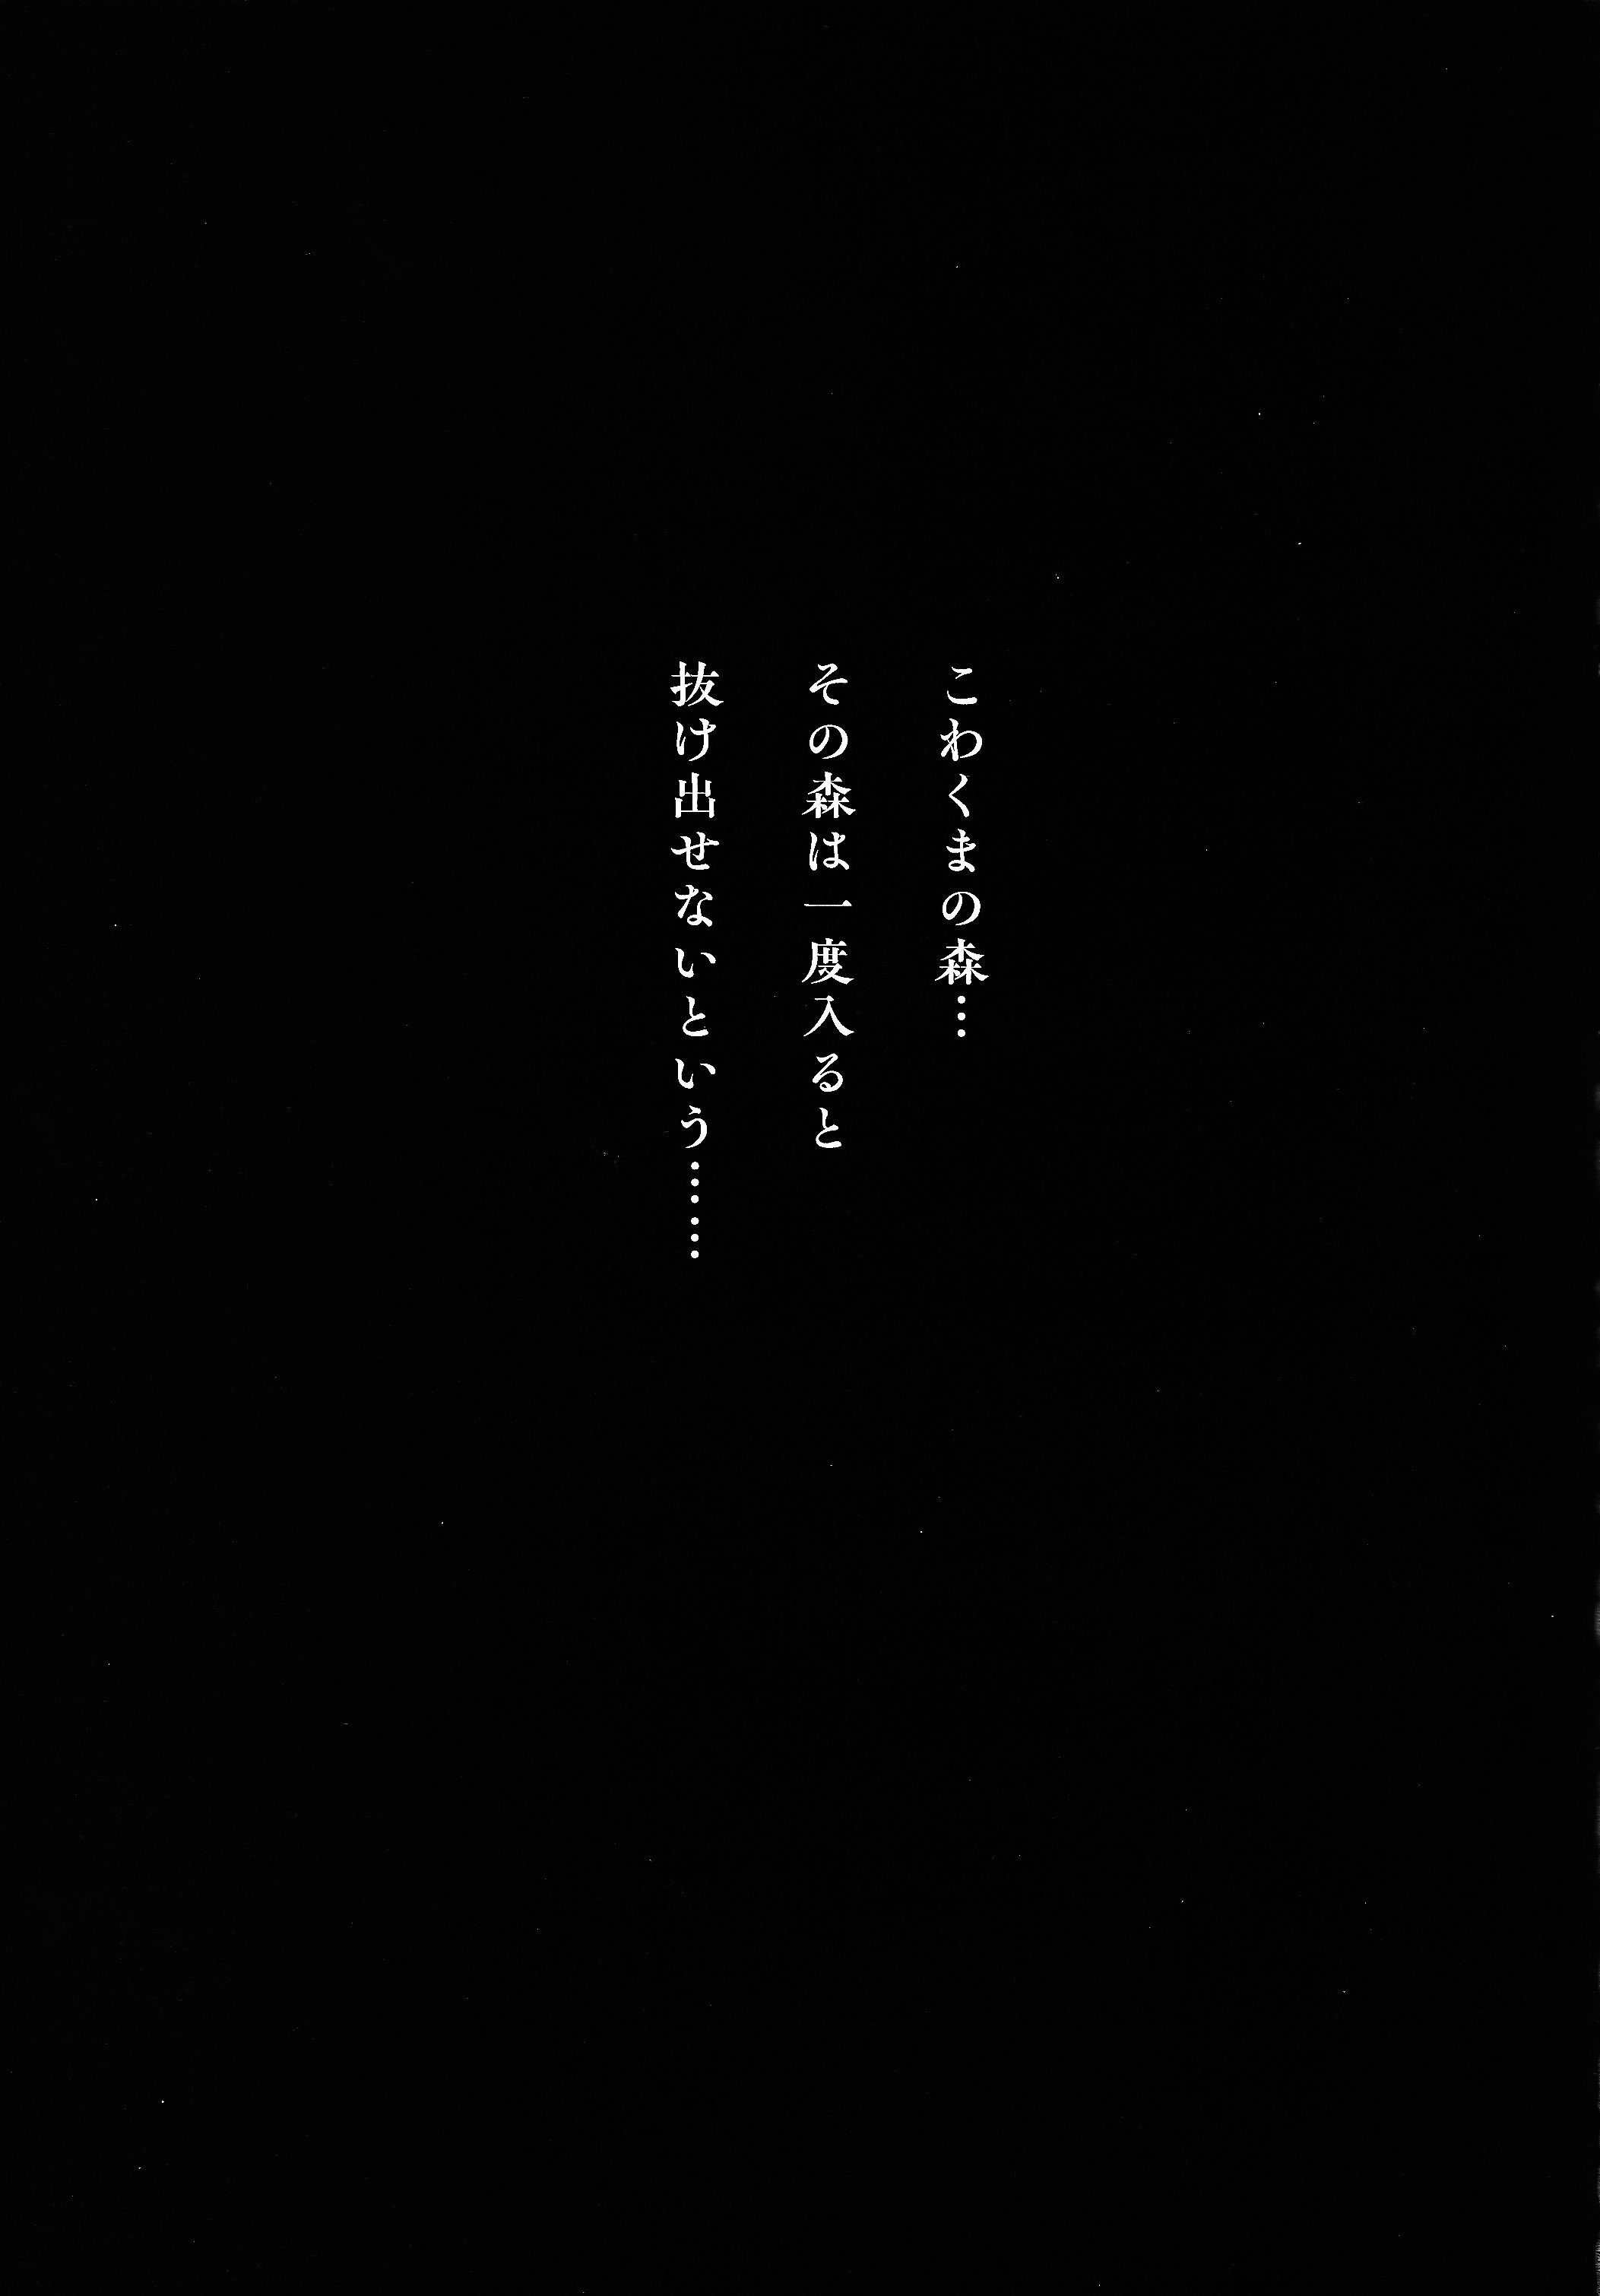 こわくまの森…
その森は一度入ると
抜け出せないという……